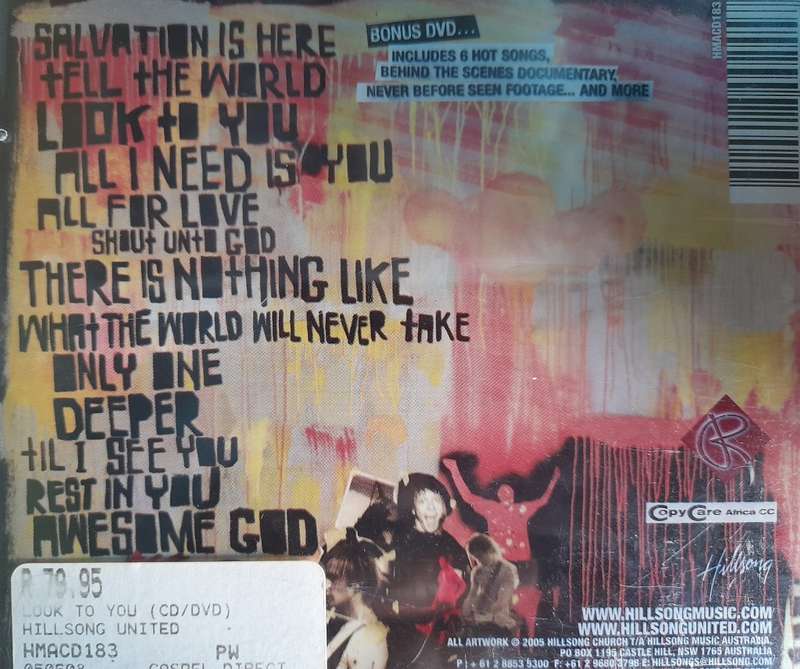 SALVATION IS HERE
tELL tHE WORLD
LOOK tO YOU
ALL I NEED IS YOU
ALL FOR LOVE
SHOUt UNtO GOD
THERE IS NOtHING LIKE
WHAt THE WORLD WILL NEVER tAKE
ONLY ONE
DEEPER
tIL I SEE YOU
REST IN YOU
AWESOME GOD
BONUS DVD...
INCLUDES 6 HOT SONGS,
BEHIND THE SCENES DOCUMENTARY,
NEVER BEFORE SEEN FOOTAGE... AND MORE
HMACD183
R
CopyCare Africa CC
Hillsong
WWW.HILLSONGMUSIC.COM
WWW.HILLSONGUNITED.COM
ALL ARTWORK © 2005 HILLSONG CHURCH T/A HILLSONG MUSIC AUSTRALIA.
PO BOX 1195 CASTLE HILL, NSW 1765 AUSTRALIA
P: + 61 2 8853 5300 F: +61 2 9680 2798 E: HILLSONGS@HILLSONG.COM
R 79.95
LOOK TO YOU (CD/DVD)
HILLSONG UNITED
HMACD183 PW
GOSPEL DIRECT